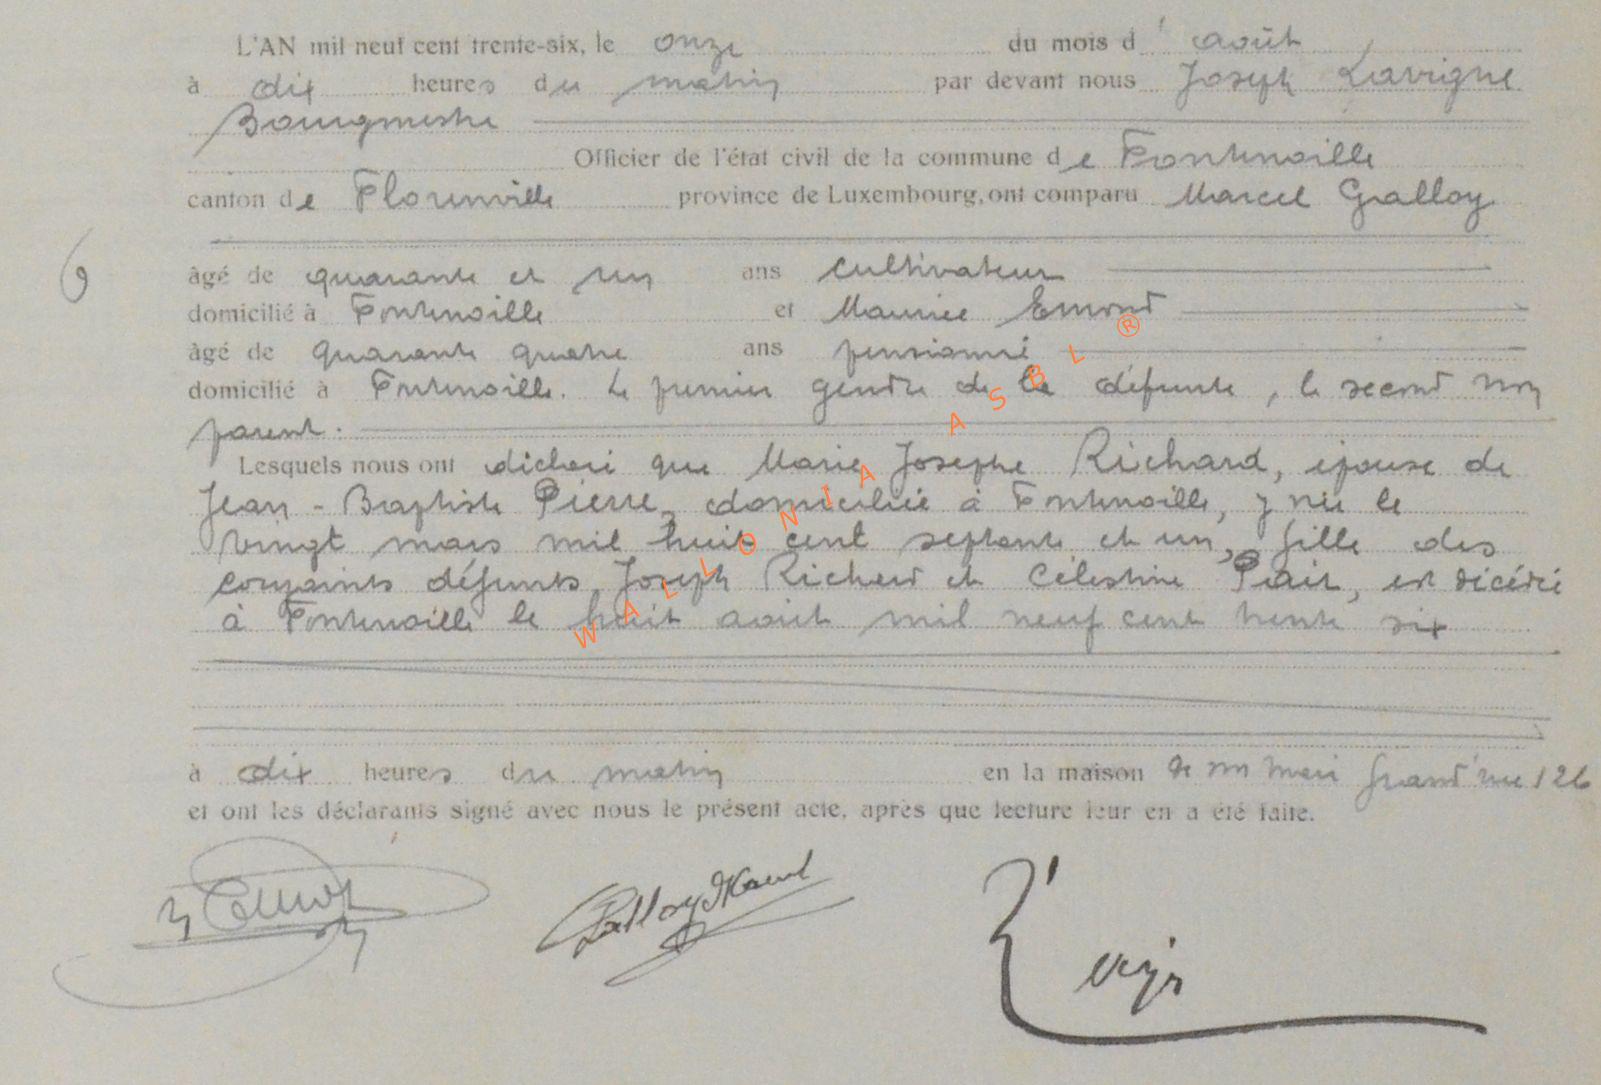 L'AN mil neuf cent trente-six, le onze du mois d' août
à dix heures du matin par devant nous Joseph Lavigne
Bourgmestre
Officier de l'état civil de la commune de Fontenoille
canton de Florenville province de Luxembourg, ont comparu Marcel Galloy
6
âgé de quarante et un ans cultivateur
domicilié à Fontenoille et Maurice Emond
âgé de quarante quatre ans pensionné
domicilié à Fontenoille. Le premier gendre de la défunte, le second non
parent.
Lesquels nous ont déclaré que Marie Josephe Richard, épouse de
Jean-Baptiste Pierre, domiciliée à Fontenoille, y née le
vingt mars mil huit cent septante et un, fille des
conjoints défunts Joseph Richard et Célestine Piait, est décédée
à Fontenoille le huit août mil neuf cent trente six
à dix heures du matin en la maison de son mari Grand'rue 126
et ont les déclarants signé avec nous le présent acte, après que lecture leur en a été faite.
Emond Galloy Marcel
WALLONIA ASBL ®